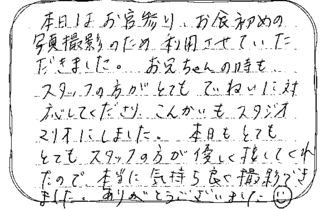 本日はお宮参り、お食初めの
写真撮影のため利用させていた
だきました。 お兄ちゃんの時も
スタッフの方がとてもていねいに対
応してくださり こんかいもスタジオ
マリオにしました。 本日もとても
とてもスタッフの方が優しく接してくれ
たので本当に気持ち良く撮影でき
ました。ありがとうございました